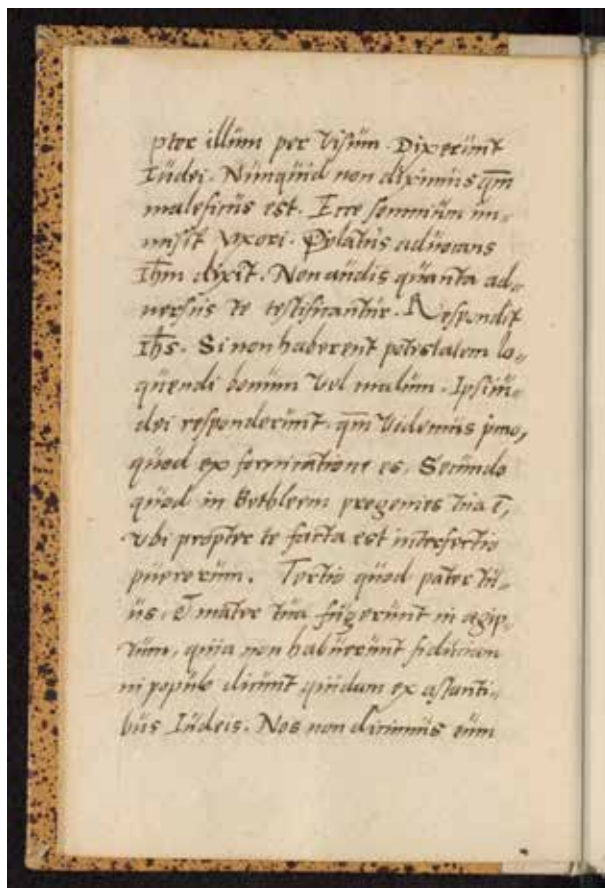 pter illum per visum. Dixerunt
Iudei. Nunquid non diximus qm̄
maleficus est. Ecce somnium im-
misit vxori. Pylatus aduocans
Ihm̄ dixit. Non audis quanta ad-
uersus te testificantur. Respondit
Ihs̄. Si non haberent potestatem lo-
quendi bonum vel malum. Ipsi iu-
dei responderunt. qm̄ videmus pmo,
quod ex fornicatione es. Secundo
quod in Bethleem progenies tua ē,
vbi propter te facta est interfectio
puerorum. Tertio quod pater tu-
us, & mater tua fugerunt in agip-
tum, quia non habuerunt fiduciam
in populo dicunt quidam ex astanti-
bus Iudeis. Nos non dicimus eum